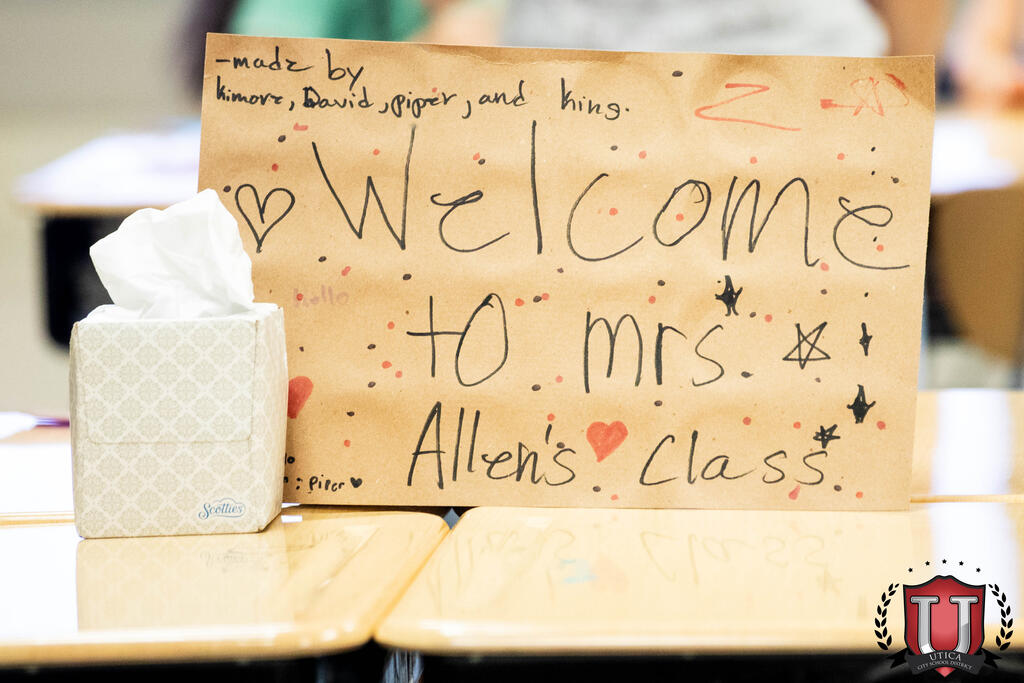 -made by
kimore, David, piper, and king.
Z
Welcome
hello
to mrs.
Allen's class
: piper
Scotties
U
UTICA
CITY SCHOOL DISTRICT